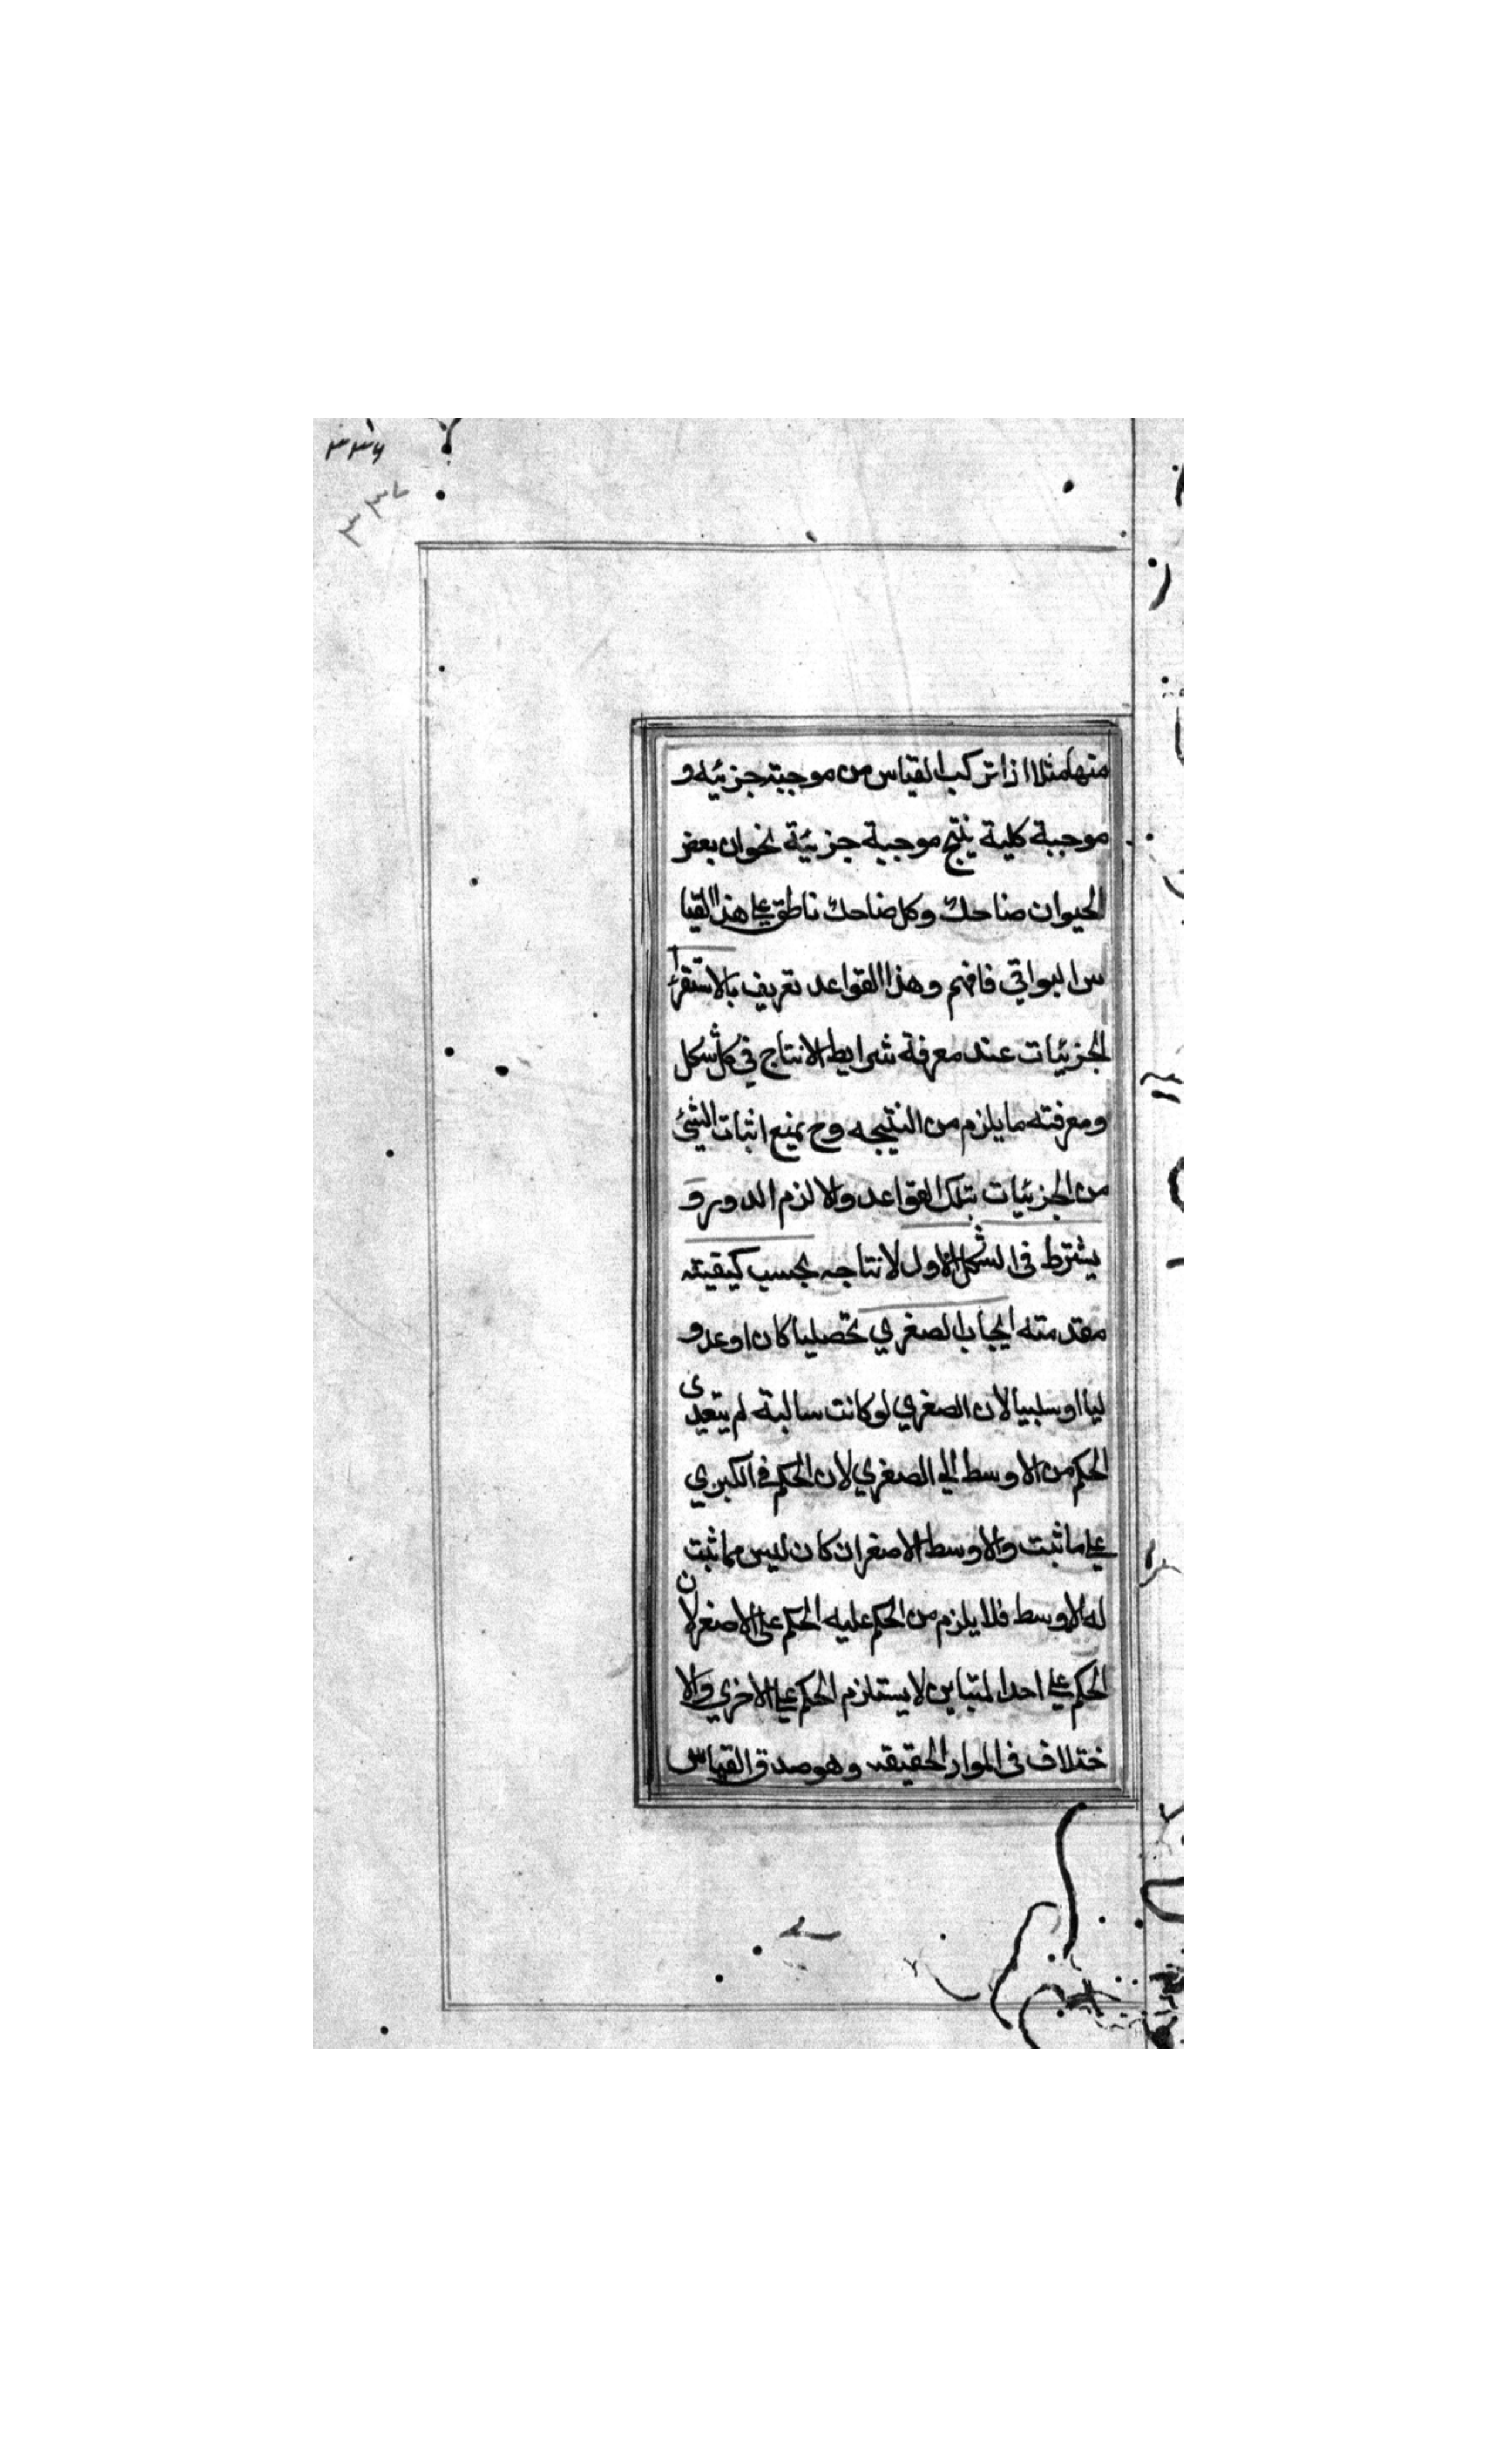 ٣٣٦
٣٣٧
منها مثلا اذا تركب القياس من موجبته جزئيه و
موجبة كلية ينتج موجبة جزئية نحوان بعض
الحيوان ضاحك وكل ضاحك ناطق على هذا القيا
س البواقي فافهم وهذا القواعد تعريف بالاستقراء
الجزئيات عند معرفة شرايط الانتاج في كل شكل
ومعرفته ما يلزم من النتيجه وح يمنع اثبات الشئ
من الجزئيات بتلك القواعد والا لزم الدور و
يشترط في الشكل الاول لانتاجه بحسب كيفيته
مقدمته ايجاب الصغري تحصليا كان اوعدو
ليا او سلبيا لان الصغري لو كانت سالبة لم يتعدى
الحكم من الاوسط الي الصغري لان الحكم في الكبري
علي ما ثبت والاوسط الاصغر ان كان ليس مما ثبت
له الاوسط فلا يلزم من الحكم عليه الحكم علي الاصغر لان
الحكم علي احد المتباين لا يستلزم الحكم علي الاخري والا
ختلاف في الموار الحقيقه وهو صدق القياس